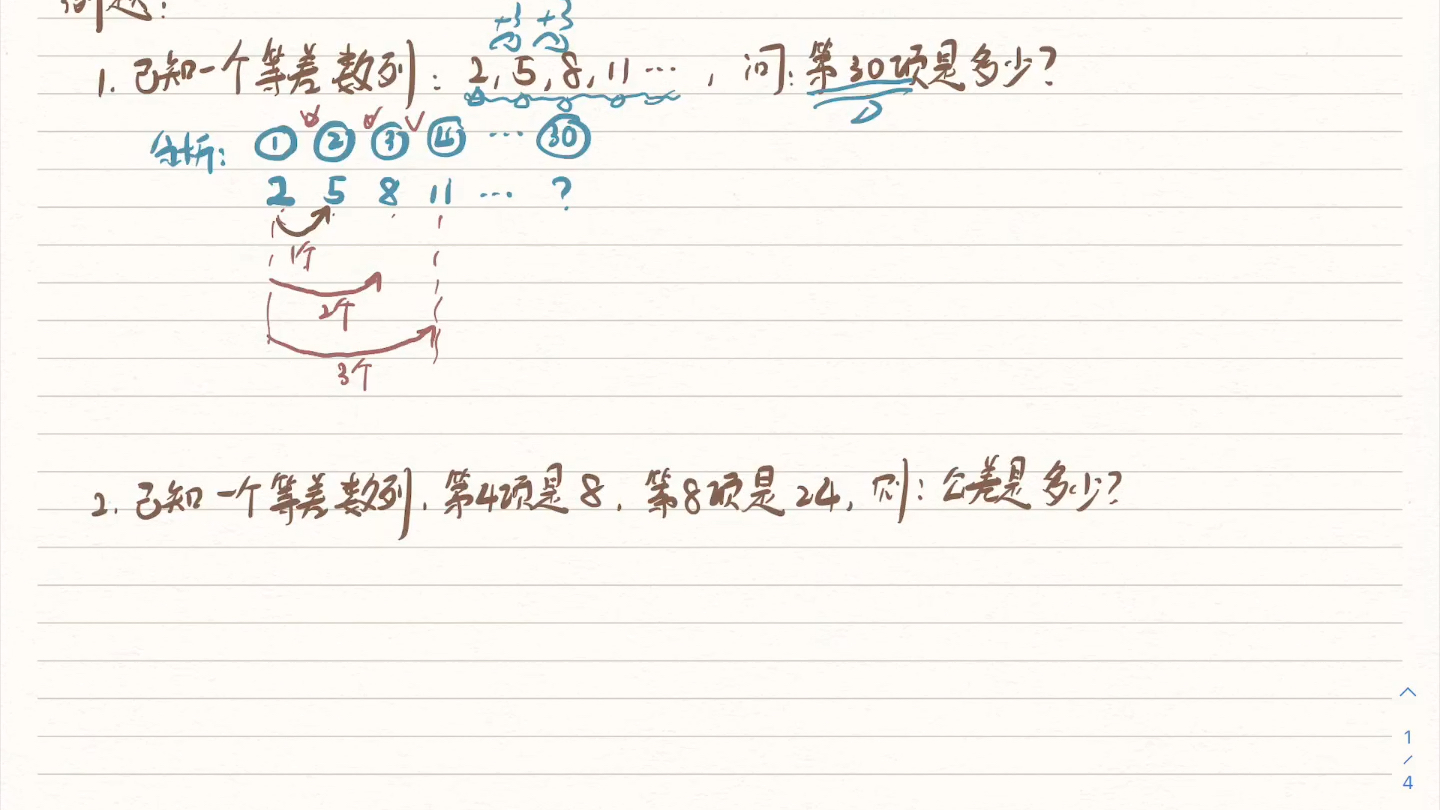 问题:
+3 +3
1. 已知一个等差数列: 2, 5, 8, 11 ··· , 问: 第30项是多少?
分析: ① ② ③ ④ ··· ㉚
2 5 8 11 ··· ?
1个
2个
3个
2. 已知一个等差数列, 第4项是8, 第8项是24, 则: 公差是多少?
1
/
4